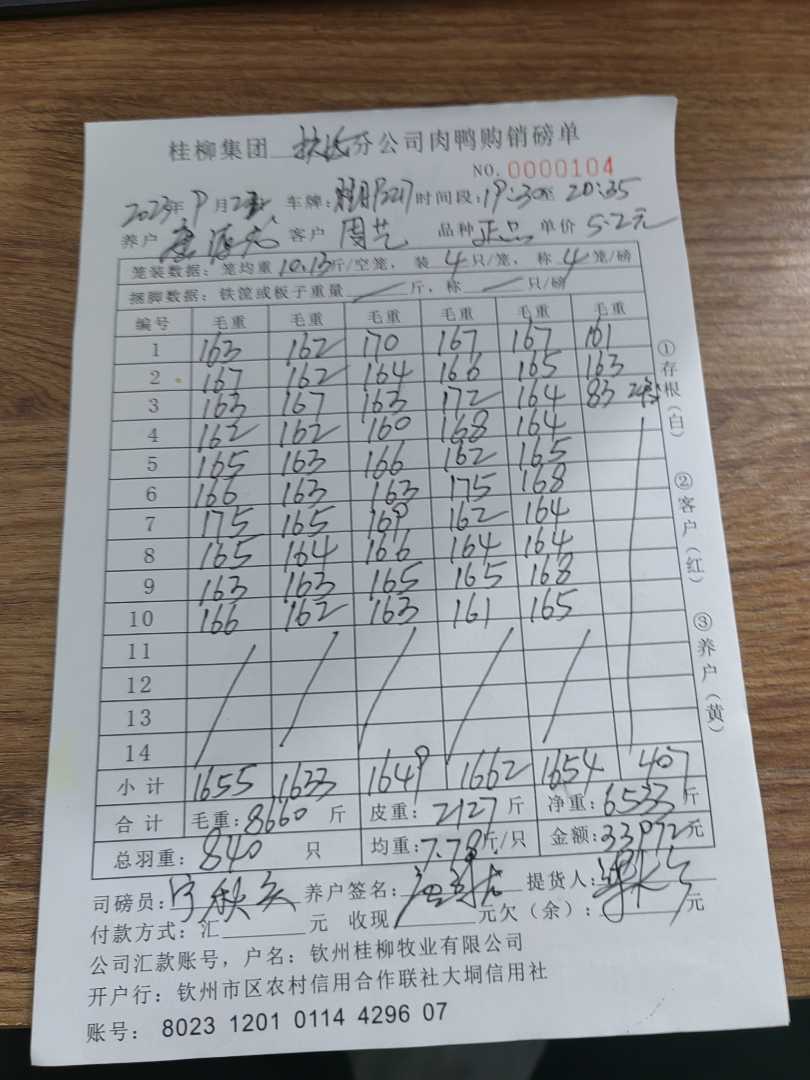 桂柳集团 分公司肉鸭购销磅单
NO. 0000104
2023年 9月2 车牌: 时间段:19:30至 20:35
养户 客户 周艺 品种 正品 单价 5.2元
笼装数据: 笼均重 10.13斤/空笼, 装 4 只/笼, 称 4 笼/磅
捆脚数据: 铁筐或板子重量 / 斤, 称 / 只/磅
编号 毛重 毛重 毛重 毛重 毛重 毛重
1 163 162 170 167 167 161
2 167 162 164 166 165 163
3 163 167 163 172 164 83 2笼
4 162 162 160 168 164
5 165 163 166 162 165
6 166 163 163 175 168
7 175 165 169 162 164
8 165 164 166 164 164
9 163 163 165 165 168
10 166 162 163 161 165
11
12
13
14
小计 1655 1633 1649 1662 1654 407
合计 毛重:8660 斤 皮重: 2127 斤 净重:6533 斤
总羽重:840 只 均重:7.78斤/只 金额:33972元
司磅员: 养户签名: 提货人:
付款方式: 汇 元 收现 元欠(余): 元
公司汇款账号, 户名: 钦州桂柳牧业有限公司
开户行: 钦州市区农村信用合作联社大垌信用社
账号: 8023 1201 0114 4296 07
①存根(白)
②客户(红)
③养户(黄)